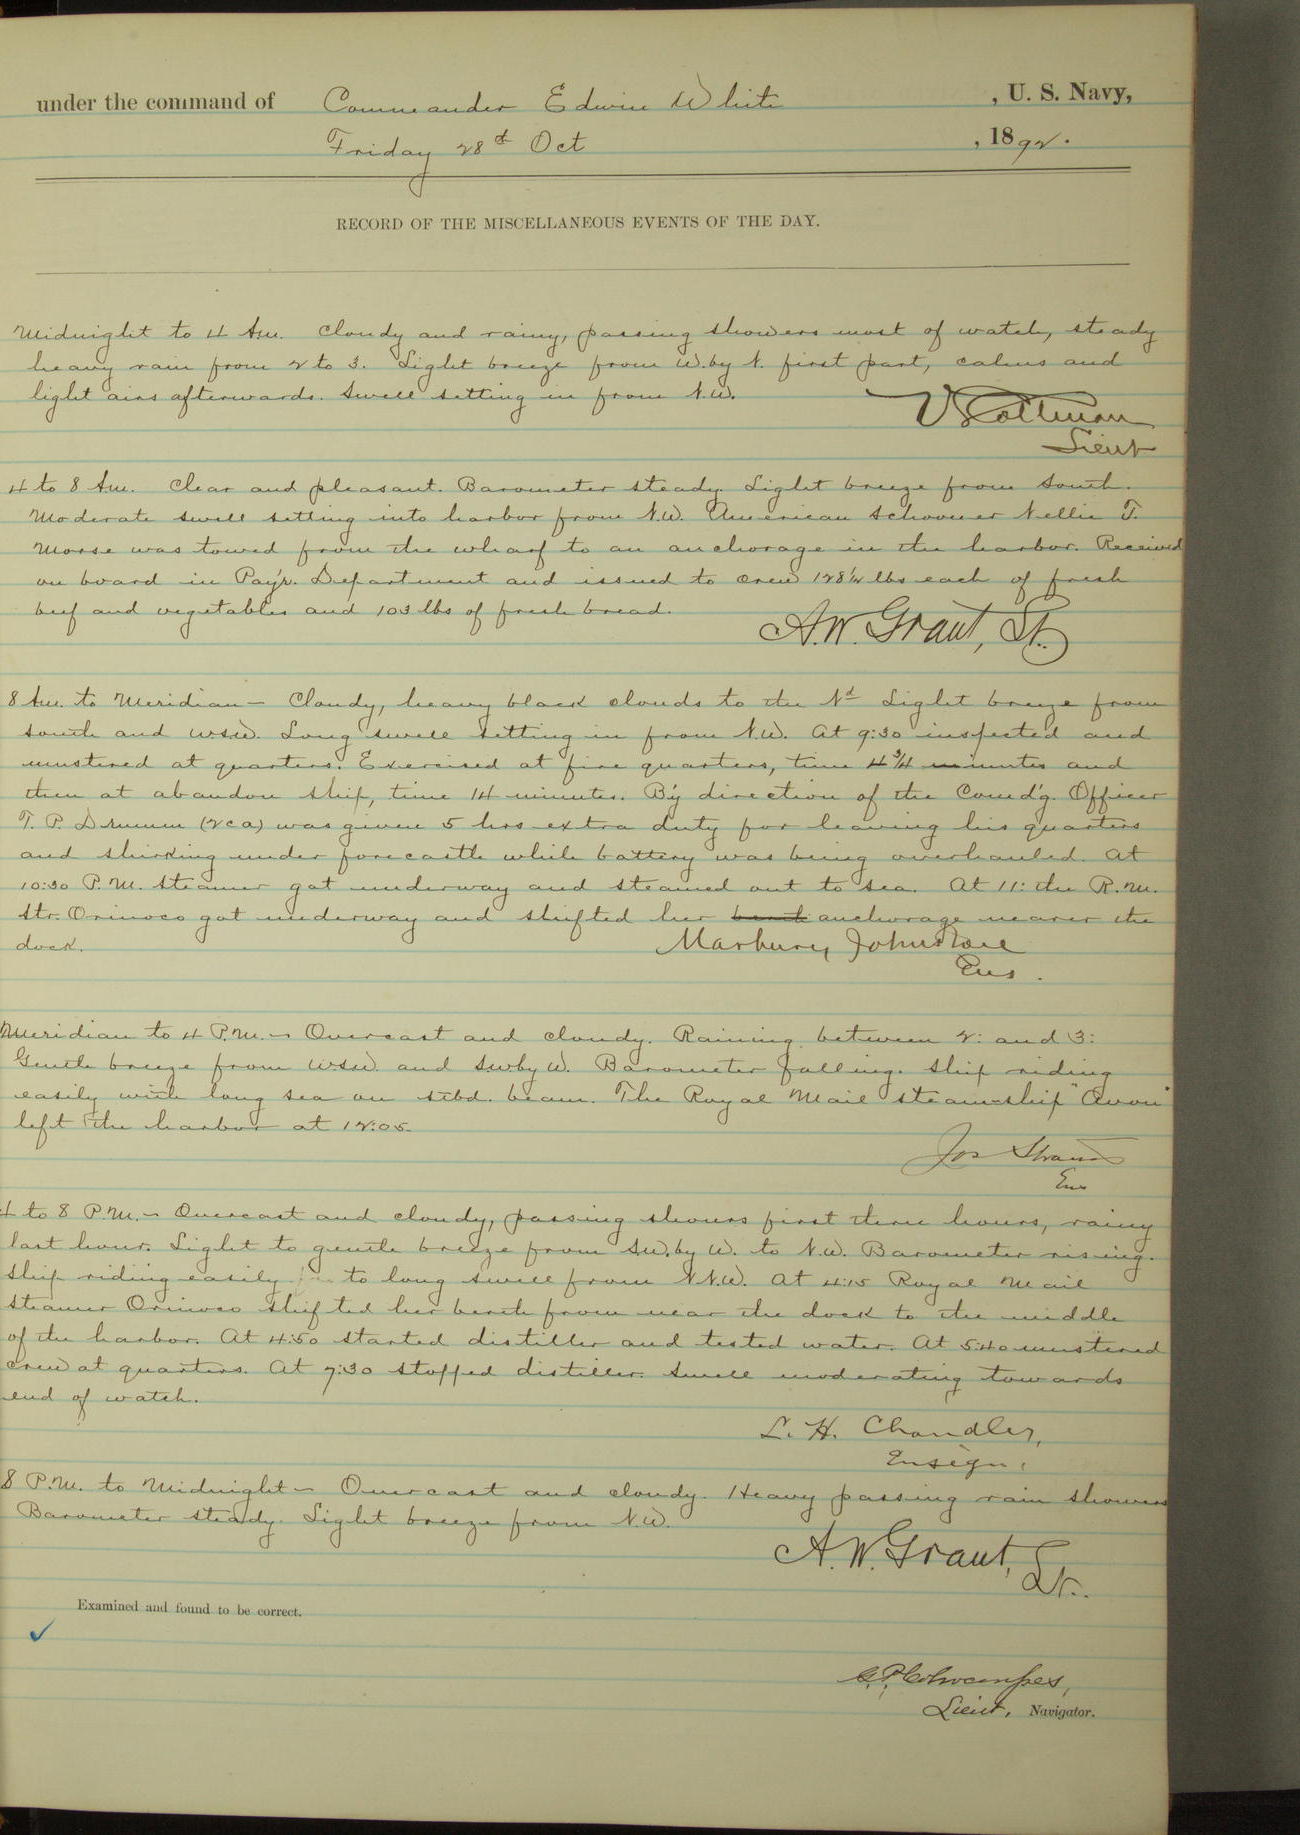 under the command of Commander Edwin White, U. S. Navy,
Friday 28th Oct, 1892.
RECORD OF THE MISCELLANEOUS EVENTS OF THE DAY.
Midnight to 4 Am. Cloudy and rainy, passing showers most of watch, steady
heavy rain from 2 to 3. Light breeze from W. by N. first part, calms and
light airs afterwards. Swell setting in from N.W.
Lieut
4 to 8 Am. Clear and pleasant. Barometer steady. Light breeze from South.
Moderate swell setting into harbor from N.W. American Schooner Nellie T.
Morse was towed from the wharf to an anchorage in the harbor. Received
on board in Pay'r. Department and issued to crew 128¼ lbs each of fresh
beef and vegetables and 103 lbs of fresh bread.
A.W. Grant, Lt.
8 Am. to Meridian — Cloudy, heavy black clouds to the Nd Light breeze from
south and WSW. Long swell setting in from N.W. At 9:30 inspected and
mustered at quarters. Exercised at fire quarters, time 4 3/4 minutes and
then at abandon ship, time 14 minutes. By direction of the Comd'g. Officer
T. P. Drumm (2ca) was given 5 hrs extra duty for leaving his quarters
and shirking under forecastle while battery was being overhauled. At
10:30 P.M. steamer got underway and steamed out to sea. At 11: the R.M.
Str. Orinoco got underway and shifted her berth anchorage nearer the
dock.
Marbury Johnston
Ens.
Meridian to 4 P.M. — Overcast and cloudy. Raining between 2: and 3:
Gentle breeze from WSW. and SW by W. Barometer falling. Ship riding
easily with long sea on stbd. beam. The Royal Mail steam-ship "Avon"
left the harbor at 12:05.
Jos Strauss
Ens
4 to 8 P.M. — Overcast and cloudy, passing showrs first three hours, rainy
last hour. Light to gentle breeze from SW. by W. to N.W. Barometer rising.
Ship riding easily to long swell from N.N.W. At 4:15 Royal Mail
steamer Orinoco shifted her berth from near the dock to the middle
of the harbor. At 4:50 started distiller and tested water. At 5:40 mustered
crew at quarters. At 7:30 stopped distiller. Swell moderating towards
end of watch.
L. H. Chandler,
Ensign.
8 P.M. to Midnight — Overcast and cloudy. Heavy passing rain showers
Barometer steady. Light breeze from N.W.
A. W. Grant, Lt.
Examined and found to be correct.
Lieut, Navigator.